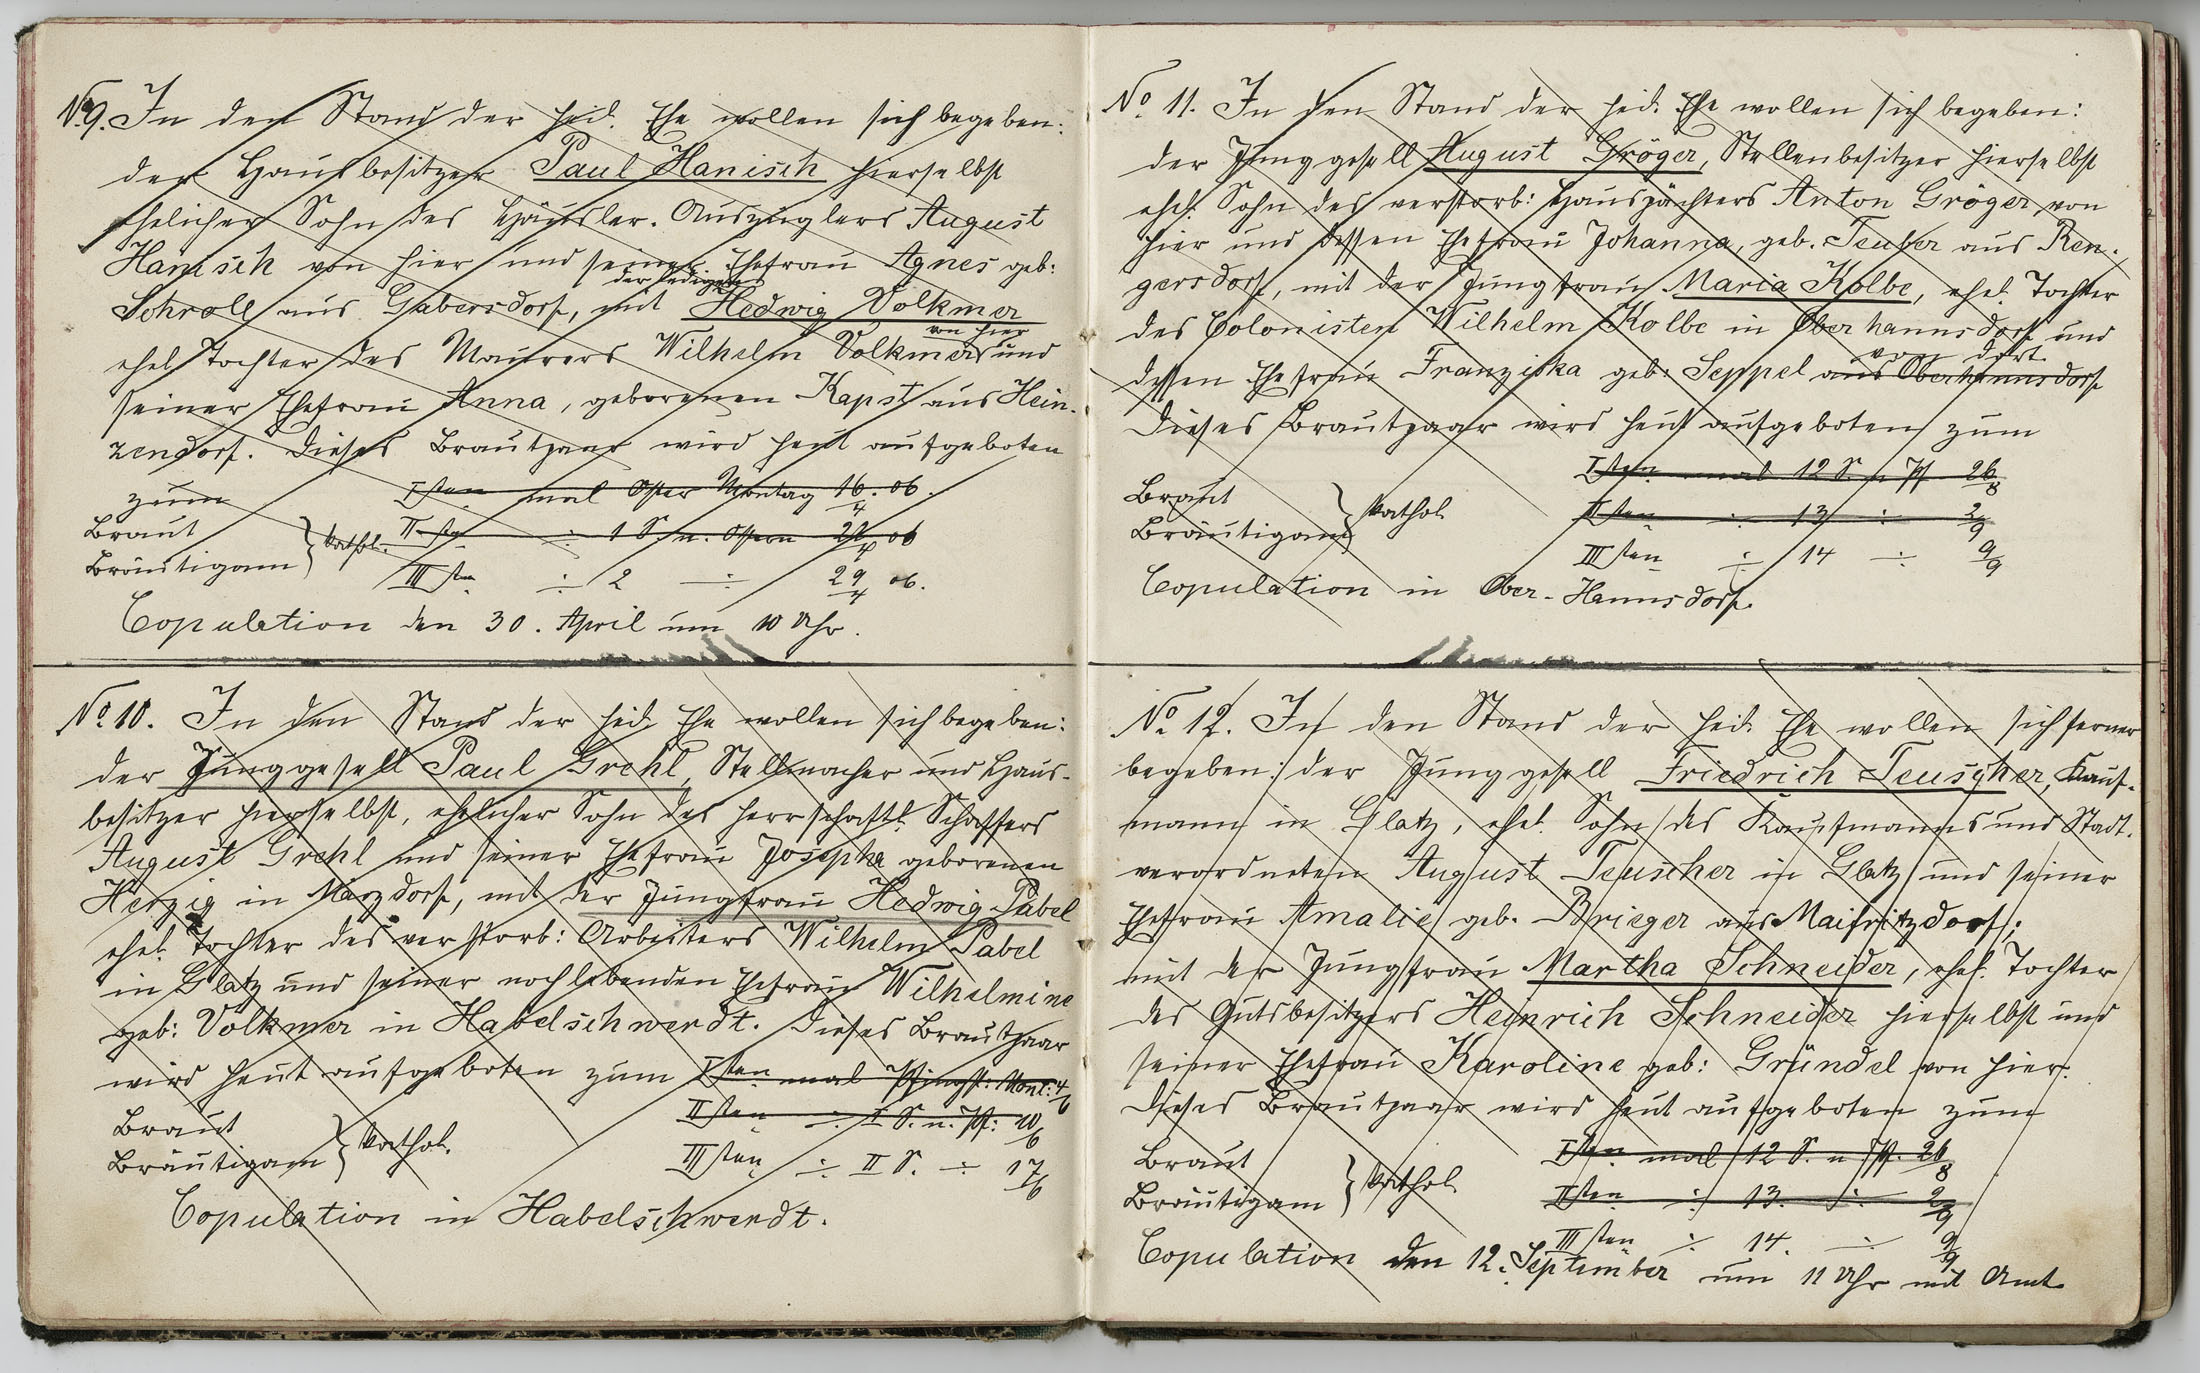 No 9. In den Stand der heil. Ehe wollen sich begeben:
der Hausbesitzer Paul Hanisch hierselbst
ehelicher Sohn des Häusler-Auszüglers August
Hanisch von hier und seiner Ehefrau Agnes geb:
der ledigen
Scholl aus Gabersdorf, mit Hedwig Volkmer
von hier
ehel Tochter des Maurers Wilhelm Volkmer und
seiner Ehefrau Anna, geborenen Kapst aus Hein-
zendorf. Dieses Brautpaar wird heut aufgeboten
zum Isten mal Oster Montag 16/4. 06.
Braut
IIsten ÷ 1 S. n. Ostern 22/4 06
Bräutigam } kathol.
IIIsten ÷ 2 ÷ 29/4 06.
Copulation den 30. April um 10 Uhr.
No 10. In den Stand der heil. Ehe wollen sich begeben:
der Junggesell Paul Grehl, Stellmacher und Haus-
besitzer hierselbst, ehelicher Sohn des herrschaftl. Schaffers
August Grehl und seiner Ehefrau Josepha geborenen
Herzig in Märzdorf, mit der Jungfrau Hedwig Pabel
ehel. Tochter des verstorb: Arbeiters Wilhelm Pabel
in Glatz und seiner noch lebenden Ehefrau Wilhelmine
geb: Volkmer in Habelschwerdt. Dieses Brautpaar
wird heut aufgeboten zum Isten mal Pfingst: Mont: 4/6
Braut
IIsten ÷ I S. n. Pf: 10/6
Bräutigam } kathol.
IIIsten ÷ II S. ÷ 17/6
Copulation in Habelschwerdt.
No 11. In den Stand der heil. Ehe wollen sich begeben:
der Junggesell August Gröger, Stellenbesitzer hierselbst
ehel. Sohn des verstorb: Hauspächters Anton Gröger von
hier und dessen Ehefrau Johanna, geb. Teuber aus Ren-
gersdorf, mit der Jungfrau Maria Kolbe, ehel. Tochter
des Colonisten Wilhelm Kolbe in Oberhannsdorf und
von dort.
dessen Ehefrau Franziska geb: Seppel aus Oberhannsdorf
Dieses Brautpaar wird heut aufgeboten zum
Isten mal 12 S. n. Pf 26/8
Braut
IIsten ÷ 13 ÷ 2/9
Bräutigam } kathol.
IIIsten ÷ 14 ÷ 9/9
Copulation in Ober-Hannsdorf.
No 12. In den Stand der heil. Ehe wollen sich ferner
begeben: der Junggesell Friedrich Teuscher, Kauf-
mann in Glatz, ehel. Sohn des Kaufmanns und Stadt-
verordneten August Teuscher in Glatz und seiner
Ehefrau Amalie geb. Brieger aus Maifritzdorf;
mit der Jungfrau Martha Schneider, ehel. Tochter
des Gutsbesitzers Heinrich Schneider hierselbst und
seiner Ehefrau Karoline geb: Gründel von hier.
Dieses Brautpaar wird heut aufgeboten zum
Isten mal 12 S. n Pf. 26/8
Braut
IIsten ÷ 13. ÷ 2/9
Bräutigam } kathol.
IIIsten ÷ 14. ÷ 9/9
Copulation den 12. September um 11 Uhr mit Amt.